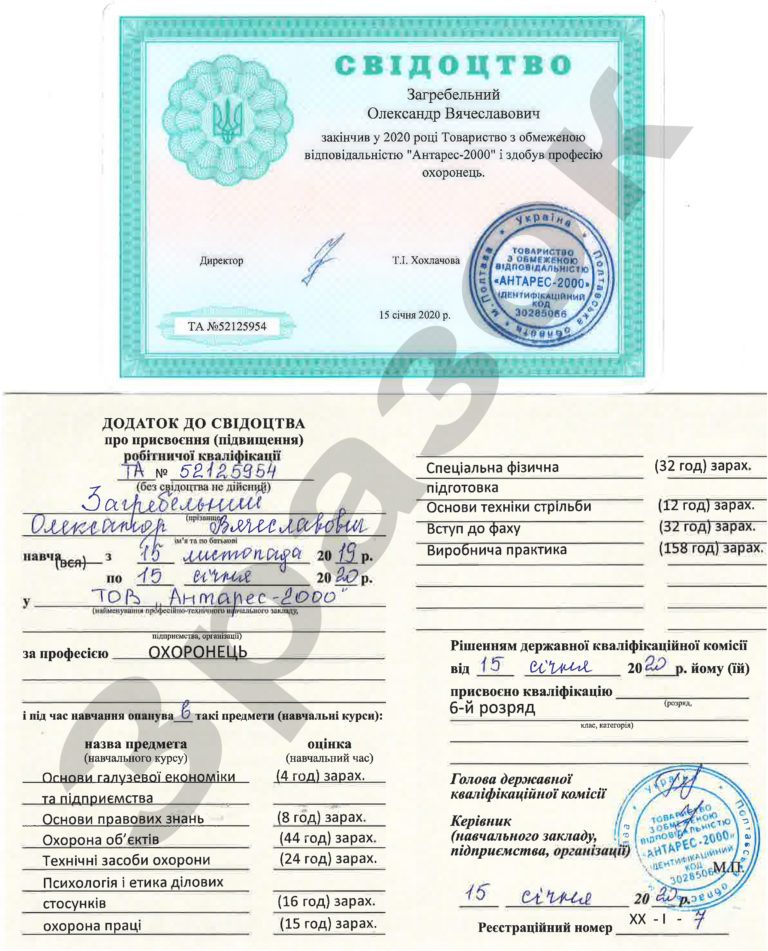 СВІДОЦТВО
Загребельний
Олександр Вячеславович
закінчив у 2020 році Товариство з обмеженою
відповідальністю "Антарес-2000" і здобув професію
охоронець.
Директор
Т.І. Хохлачова
15 січня 2020 р.
ТА №52125954
Україна * Полтавська область * м. Полтава *
ТОВАРИСТВО
З ОБМЕЖЕНОЮ
ВІДПОВІДАЛЬНІСТЮ
«АНТАРЕС-2000»
ІДЕНТИФІКАЦІЙНИЙ
КОД
30285066
Зразок
ДОДАТОК ДО СВІДОЦТВА
про присвоєння (підвищення)
робітничої кваліфікації
ТА № 52125954
(без свідоцтва не дійсний)
Загребельний
(прізвище,
Олександр Вячеславович
ім'я та по батькові)
навча(вся) з 15 листопада 2019 р.
по 15 січня 2020 р.
у ТОВ „Антарес-2000"
(найменування професійно-технічного навчального закладу,
підприємства, організації)
за професією ОХОРОНЕЦЬ
і під час навчання опанував такі предмети (навчальні курси):
назва предмета оцінка
(навчального курсу) (навчальний час)
Основи галузевої економіки (4 год) зарах.
та підприємства
Основи правових знань (8 год) зарах.
Охорона об’єктів (44 год) зарах.
Технічні засоби охорони (24 год) зарах.
Психологія і етика ділових
стосунків (16 год) зарах.
охорона праці (15 год) зарах.
Спеціальна фізична (32 год) зарах.
підготовка
Основи техніки стрільби (12 год) зарах.
Вступ до фаху (32 год) зарах.
Виробнича практика (158 год) зарах.
Рішенням державної кваліфікаційної комісії
від 15 січня 2020 р. йому (їй)
присвоєно кваліфікацію
6-й розряд (розряд,
клас, категорія)
Голова державної
кваліфікаційної комісії
Керівник
(навчального закладу,
підприємства, організації)
М.П.
ТОВАРИСТВО
З ОБМЕЖЕНОЮ
ВІДПОВІДАЛЬНІСТЮ
«АНТАРЕС-2000»
ІДЕНТИФІКАЦІЙНИЙ
КОД
30285066
15 січня 2020 р.
Реєстраційний номер XX - I - 7